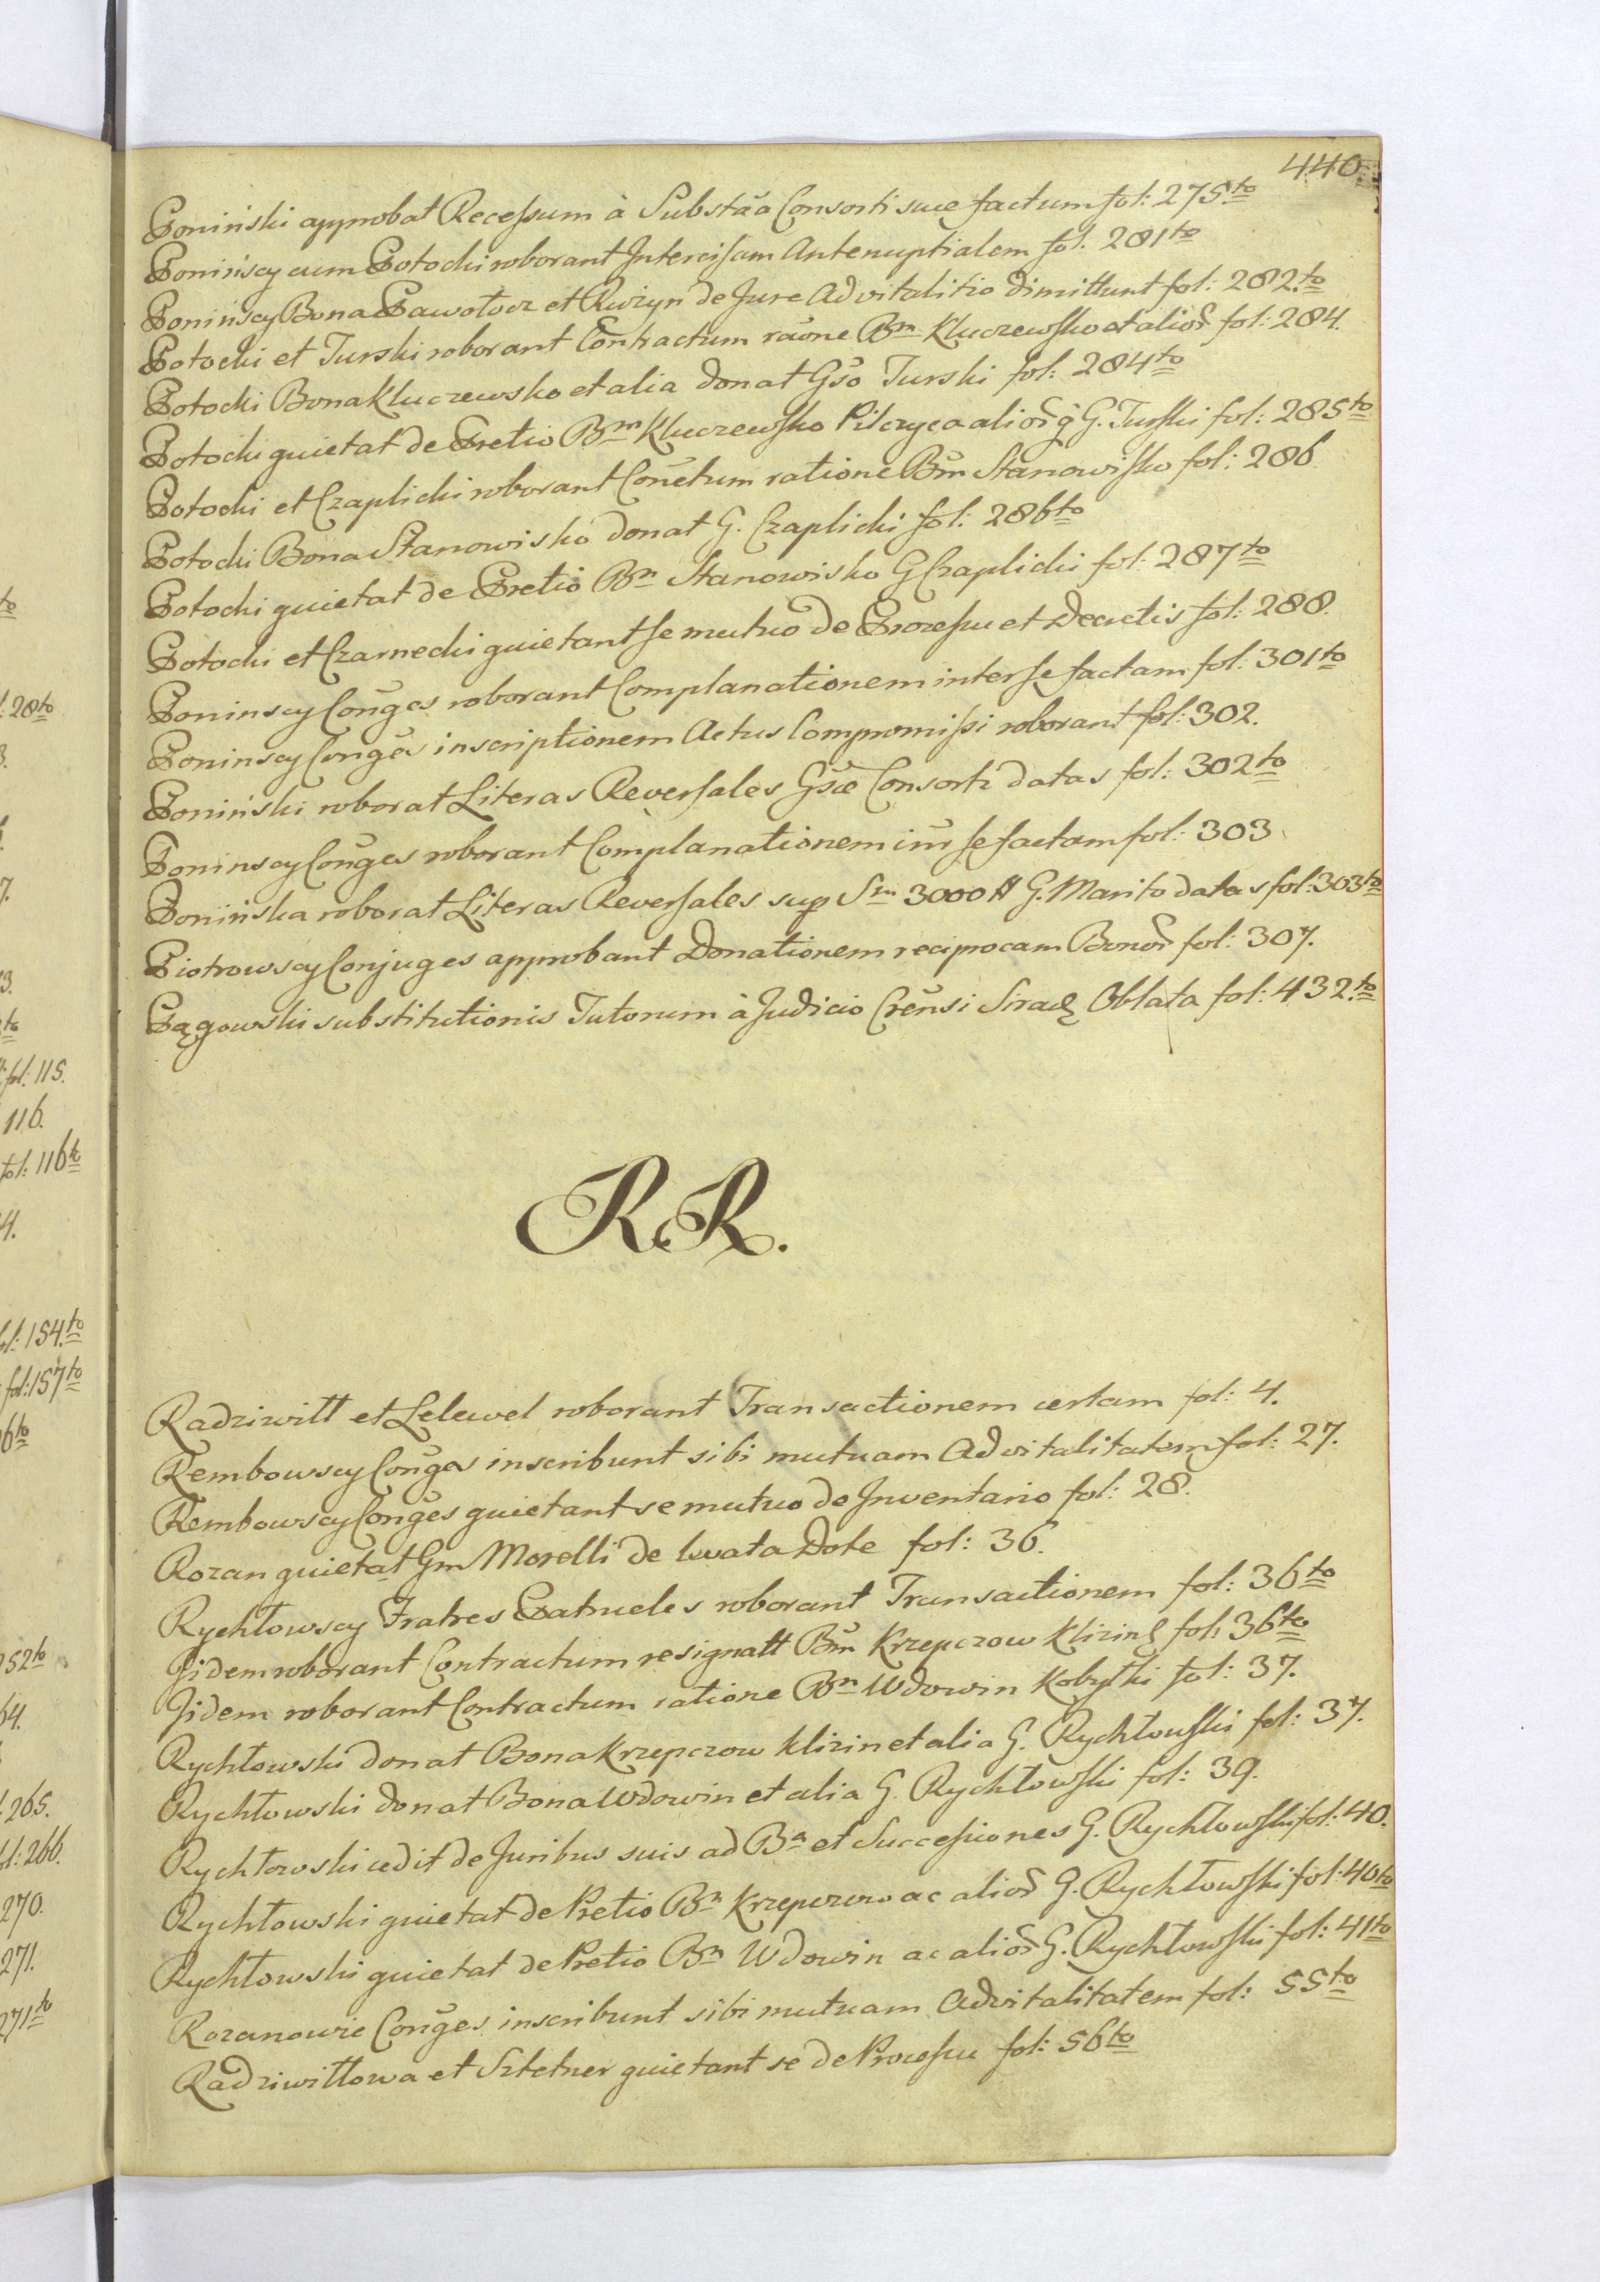 440.
Poniński approbat Recessum à Substãa Consorti suæ factum fol: 275to
Ponińscy cum Potocki roborant Intercisam Antenuptialem fol: 281to
Ponińscy Bona Pawołocz et Ruzyn de Jure Advitalitio dimittunt fol: 282to
Potocki et Turski roborant Contractum raõne Bm Kluczewsko et alior fol: 284.
Potocki Bona Kluczewsko et alia donat Gso Turski fol: 284to
Potocki quietat de Pretio Bm Kluczewsko Pilczyca alior G. Turski fol: 285to
Potocki et Czaplicki roborant Conctum ratione Bm Stanowisko fol: 286
Potocki Bona Stanowisko donat G. Czaplicki fol: 286to
Potocki quietat de Pretio Bn Stanowisko G Czaplicki fol: 287to
Potocki et Czarnecki quietant se mutuo de Processu et Decretis fol: 288.
Poninscy Conges roborant Complanationem inter se factam fol: 301to
Poninscy Conges inscriptionem Actus Compromissi roborant fol: 302.
Poniński roborat Literas Reversales Gsæ Consorti datas fol: 302to
Poninscy Conges roborant Complanationem inr se factam fol: 303
Ponińska roborat Literas Reversales sup Sm 3000 # G. Marito datas fol: 303to
Piotrowscy Conjuges approbant Donationem reciprocam Bonor fol: 307.
Pągowski substitutionis Tutorum à Judicio Crensi Sirad Oblata fol: 432to
RR.
Radziwiłł et Lelewel roborant Transactionem certam fol: 4.
Rembowscy Conges inscribunt sibi mutuam Advitalitatem fol: 27.
Rembowscy Conges quietant se mutuo de Inventario fol: 28.
Rozan quietat Gm Morelli de levata Dote fol: 36.
Rychłowscy Fratres Patrueles roborant Transactionem fol: 36to
Jidem roborant Contractum resignatt Bm Krzepczow Klizin fol: 36to
Jidem roborant Contractum ratione Bn Wdowin Kobyłki fol: 37.
Rychłowski donat Bona Krzepczow Klizin et alia G. Rychłowski fol: 37.
Rychłowski donat Bona Wdowin et alia G. Rychłowski fol: 39.
Rychłowski cedit de Juribus suis ad Ba et Successiones G. Rychłowski fol: 40.
Rychłowski quietat de Pretio Bn Krzepczow ac alior G. Rychłowski fol: 40to
Rychłowski quietat de Pretio Bn Wdowin ac alior G. Rychłowski fol: 41to
Rozanowie Conges inscribunt sibi mutuam Advitalitatem fol: 55to
Radziwiłłowa et Sztetner quietant se de Processu fol: 56to